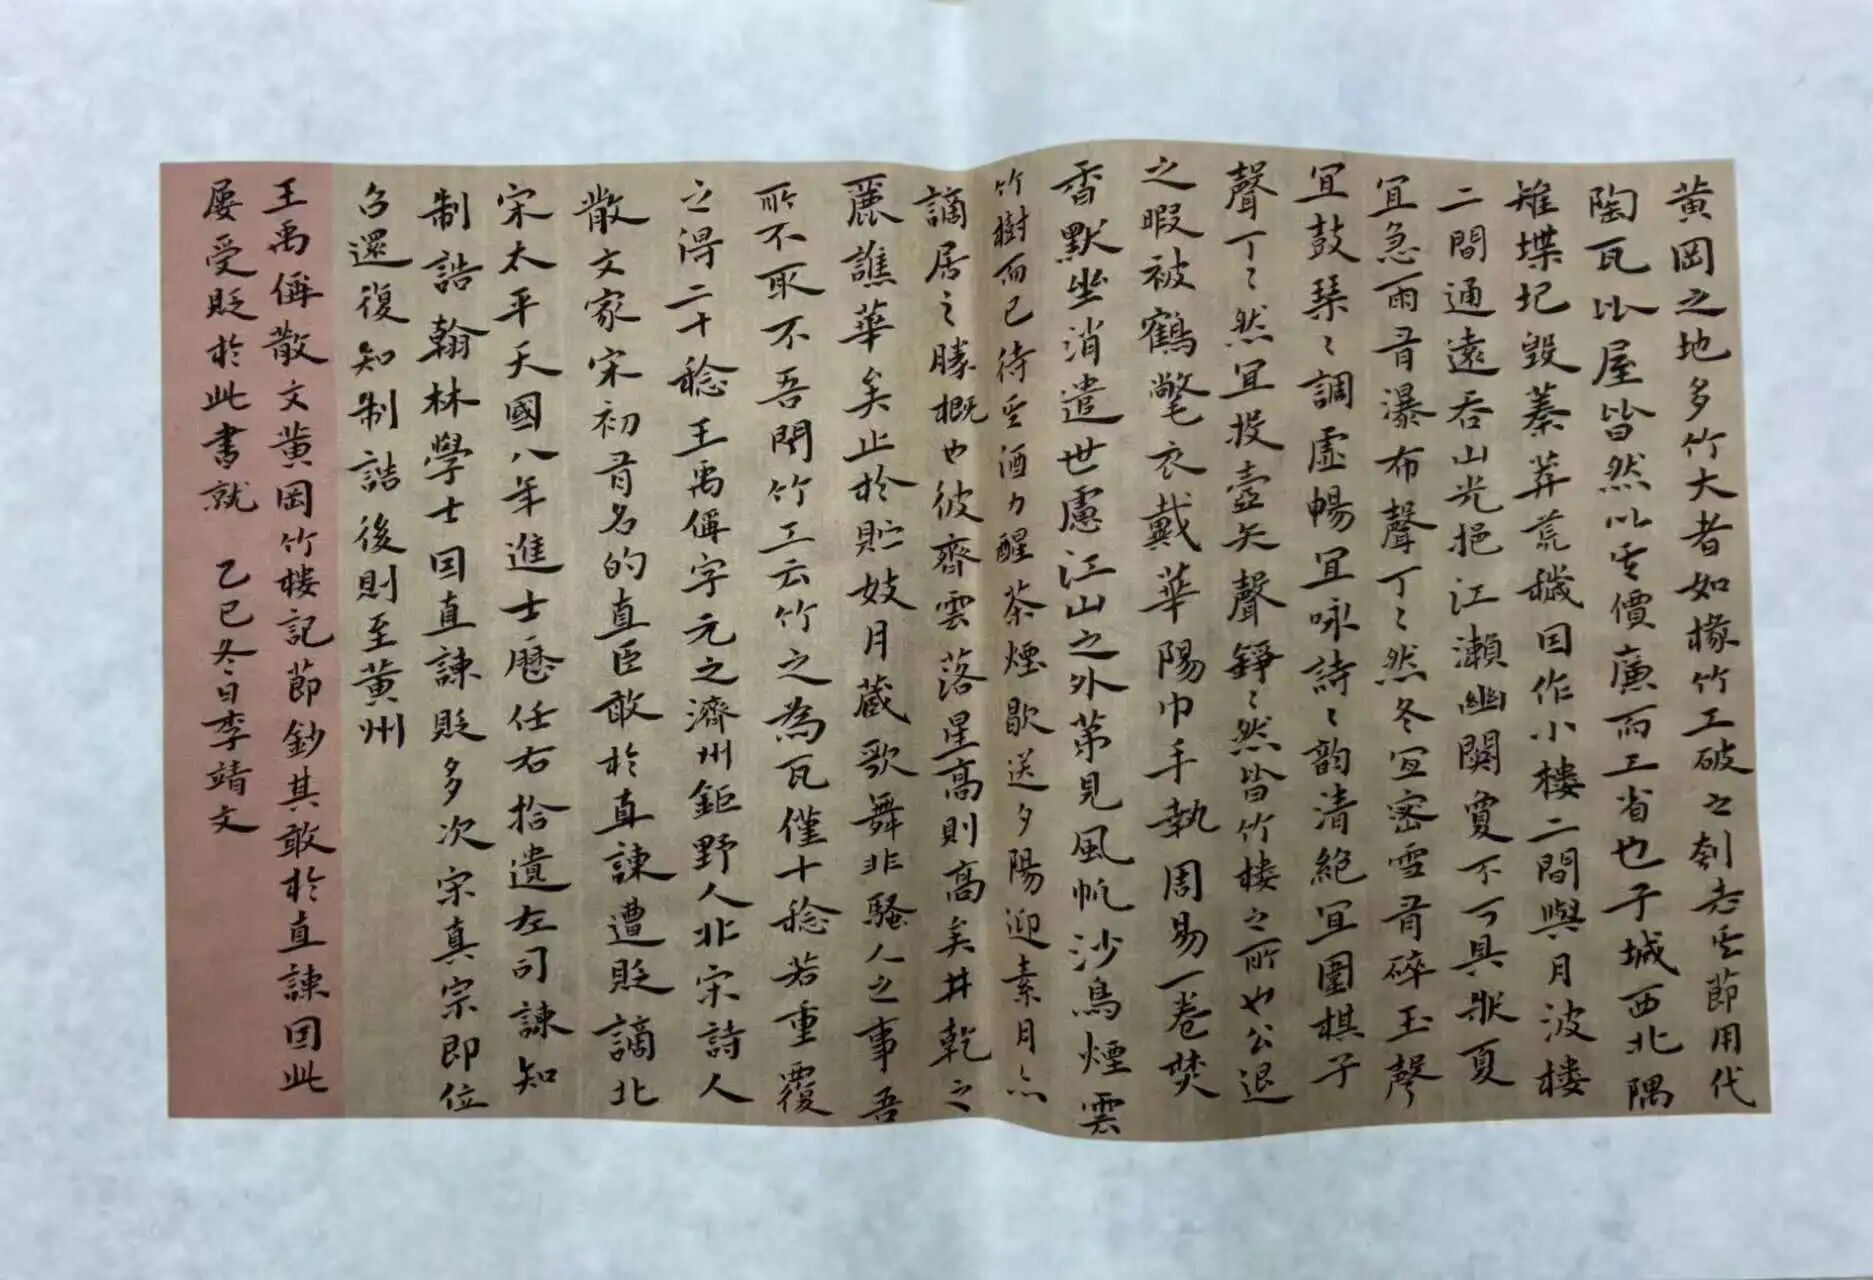 黄岡之地多竹大者如椽竹工破之刳去其節用代
陶瓦比屋皆然以其價廉而工省也子城西北隅
雉堞圮毀蓁莽荒穢因作小樓二間與月波樓
二間通遠吞山光挹江瀨幽闃敻不可具狀夏
宜急雨有瀑布聲丁〻然冬宜密雪有碎玉聲
宜鼓琴〻調虛暢宜咏詩〻韵清絶宜圍棋子
聲丁〻然宜投壺矢聲錚〻然皆竹樓之所也公退
之暇被鶴氅衣戴華陽巾手執周易一卷焚
香默坐消遣世慮江山之外第見風帆沙鳥煙雲
竹樹而已待其酒力醒茶煙歇送夕陽迎素月亦
謫居之勝概也彼齊雲落星高則高矣井乾之
麗譙華矣止於貯妓月蔵歌舞非騷人之事吾
所不取不吾聞竹工云竹之為瓦僅十稔若重覆
之得二十稔王禹偁字元之濟州鉅野人北宋詩人
散文家宋初有名的直臣敢於直諫遭貶謫北
宋太平天國八年進士歷任右拾遺左司諫知
制誥翰林學士因直諫貶多次宋真宗即位
召還復知制誥後則至黄州
王禹偁散文黄岡竹樓記節鈔其敢於直諫因此
屡受貶於此書就 乙巳冬日李靖文